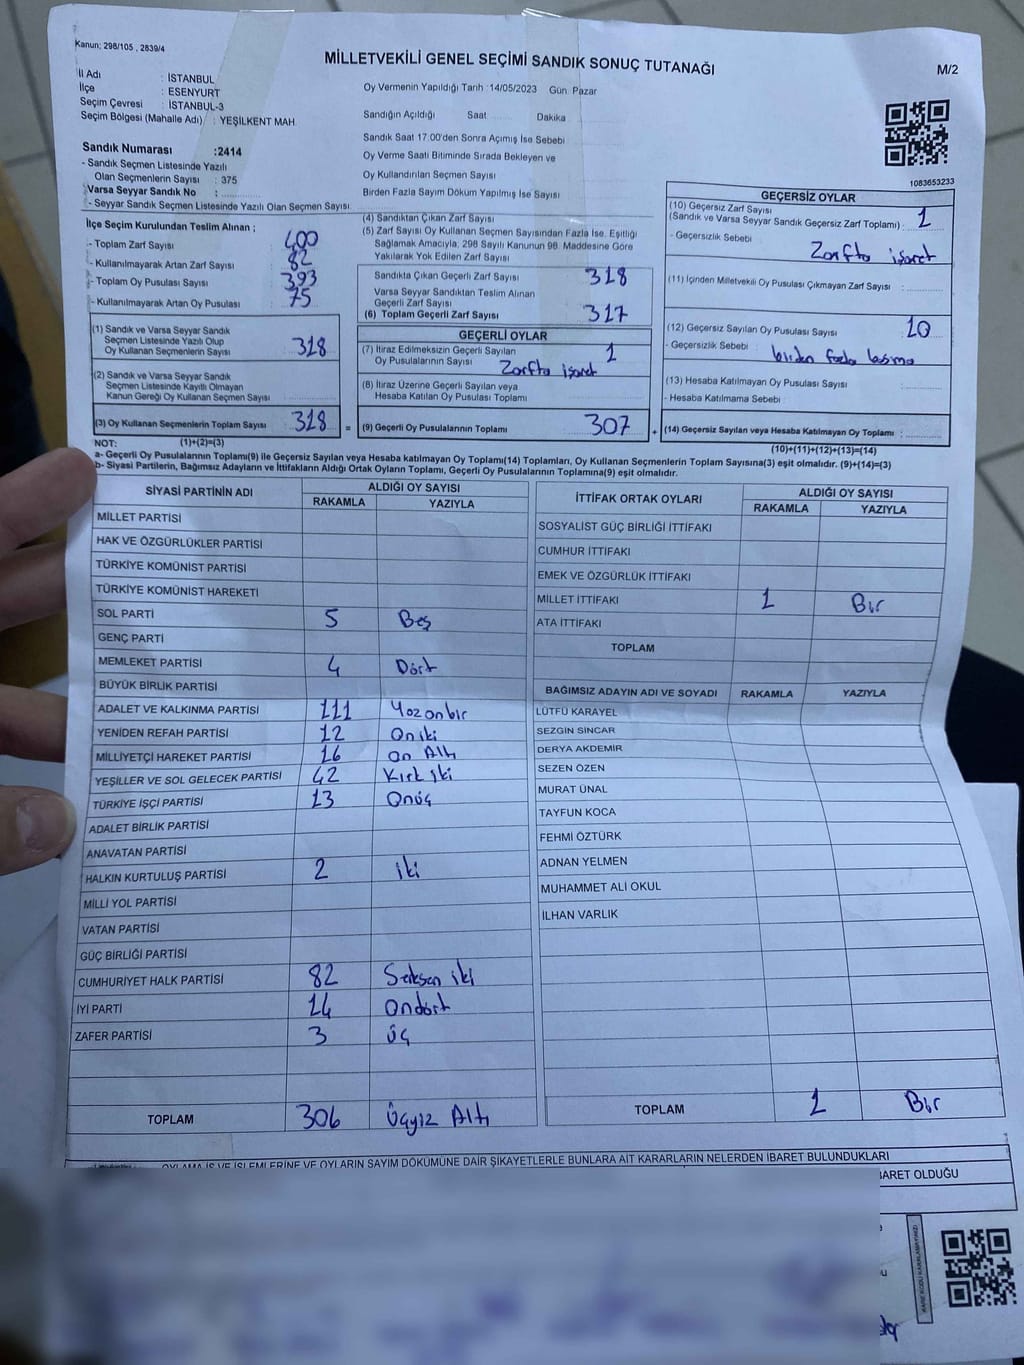 Kanun; 298/105 , 2839/4
MİLLETVEKİLİ GENEL SEÇİMİ SANDIK SONUÇ TUTANAĞI
M/2
İl Adı : İSTANBUL
İlçe : ESENYURT
Seçim Çevresi : İSTANBUL-3
Seçim Bölgesi (Mahalle Adı) : YEŞİLKENT MAH.
Sandık Numarası :2414
- Sandık Seçmen Listesinde Yazılı
Olan Seçmenlerin Sayısı : 375
Varsa Seyyar Sandık No :
- Seyyar Sandık Seçmen Listesinde Yazılı Olan Seçmen Sayısı:
Oy Vermenin Yapıldığı Tarih :14/05/2023 Gün: Pazar
Sandığın Açıldığı Saat Dakika
Sandık Saat 17:00'den Sonra Açımış İse Sebebi
Oy Verme Saati Bitiminde Sırada Bekleyen ve
Oy Kullandırılan Seçmen Sayısı
Birden Fazla Sayım Döküm Yapılmış İse Sayısı
1083653233
İlçe Seçim Kurulundan Teslim Alınan ;
- Toplam Zarf Sayısı 400
- Kullanılmayarak Artan Zarf Sayısı 82
- Toplam Oy Pusulası Sayısı 393
- Kullanılmayarak Artan Oy Pusulası 75
(1) Sandık ve Varsa Seyyar Sandık
Seçmen Listesinde Yazılı Olup
Oy Kullanan Seçmenlerin Sayısı 318
(2) Sandık ve Varsa Seyyar Sandık
Seçmen Listesinde Kayıtlı Olmayan
Kanun Gereği Oy Kullanan Seçmen Sayısı
(3) Oy Kullanan Seçmenlerin Toplam Sayısı 318 =
(4) Sandıktan Çıkan Zarf Sayısı
(5) Zarf Sayısı Oy Kullanan Seçmen Sayısından Fazla İse, Eşitliği
Sağlamak Amacıyla, 298 Sayılı Kanunun 98. Maddesine Göre
Yakılarak Yok Edilen Zarf Sayısı
Sandıkta Çıkan Geçerli Zarf Sayısı 318
Varsa Seyyar Sandıktan Teslim Alınan
Geçerli Zarf Sayısı
(6) Toplam Geçerli Zarf Sayısı 317
GEÇERLİ OYLAR
(7) İtiraz Edilmeksizin Geçerli Sayılan 1
Oy Pusulalarının Sayısı Zarfta işaret
(8) İtiraz Üzerine Geçerli Sayılan veya
Hesaba Katılan Oy Pusulası Toplamı
(9) Geçerli Oy Pusulalarının Toplamı 307 +
GEÇERSİZ OYLAR
(10) Geçersiz Zarf Sayısı
(Sandık ve Varsa Seyyar Sandık Geçersiz Zarf Toplamı) : 1
- Geçersizlik Sebebi : Zarfta işaret
(11) İçinden Milletvekili Oy Pusulası Çıkmayan Zarf Sayısı :
(12) Geçersiz Sayılan Oy Pusulası Sayısı : 10
- Geçersizlik Sebebi : birden fazla basma
(13) Hesaba Katılmayan Oy Pusulası Sayısı :
- Hesaba Katılmama Sebebi :
(14) Geçersiz Sayılan veya Hesaba Katılmayan Oy Toplamı :
NOT: (1)+(2)=(3) (10)+(11)+(12)+(13)=(14)
a- Geçerli Oy Pusulalarının Toplamı(9) ile Geçersiz Sayılan veya Hesaba Katılmayan Oy Toplamı(14) Toplamları, Oy Kullanan Seçmenlerin Toplam Sayısına(3) eşit olmalıdır. (9)+(14)=(3)
b- Siyasi Partilerin, Bağımsız Adayların ve İttifakların Aldığı Ortak Oyların Toplamı, Geçerli Oy Pusulalarının Toplamına(9) eşit olmalıdır.
SİYASİ PARTİNİN ADI ALDIĞI OY SAYISI
RAKAMLA YAZIYLA
MİLLET PARTİSİ
HAK VE ÖZGÜRLÜKLER PARTİSİ
TÜRKİYE KOMÜNİST PARTİSİ
TÜRKİYE KOMÜNİST HAREKETİ
SOL PARTİ 5 Beş
GENÇ PARTİ
MEMLEKET PARTİSİ 4 Dört
BÜYÜK BİRLİK PARTİSİ
ADALET VE KALKINMA PARTİSİ 111 Yüzonbir
YENİDEN REFAH PARTİSİ 12 Oniki
MİLLİYETÇİ HAREKET PARTİSİ 16 On Altı
YEŞİLLER VE SOL GELECEK PARTİSİ 42 Kırk iki
TÜRKİYE İŞÇİ PARTİSİ 13 Onüç
ADALET BİRLİK PARTİSİ
ANAVATAN PARTİSİ
HALKIN KURTULUŞ PARTİSİ 2 iki
MİLLİ YOL PARTİSİ
VATAN PARTİSİ
GÜÇ BİRLİĞİ PARTİSİ
CUMHURİYET HALK PARTİSİ 82 Seksen iki
İYİ PARTİ 14 Ondört
ZAFER PARTİSİ 3 Üç
TOPLAM 306 Üçyüz Altı
İTTİFAK ORTAK OYLARI ALDIĞI OY SAYISI
RAKAMLA YAZIYLA
SOSYALİST GÜÇ BİRLİĞİ İTTİFAKI
CUMHUR İTTİFAKI
EMEK VE ÖZGÜRLÜK İTTİFAKI
MİLLET İTTİFAKI 1 Bir
ATA İTTİFAKI
TOPLAM
BAĞIMSIZ ADAYIN ADI VE SOYADI RAKAMLA YAZIYLA
LÜTFÜ KARAYEL
SEZGİN SİNCAR
DERYA AKDEMİR
SEZEN ÖZEN
MURAT ÜNAL
TAYFUN KOCA
FEHMİ ÖZTÜRK
ADNAN YELMEN
MUHAMMET ALİ OKUL
İLHAN VARLIK
TOPLAM 1 Bir
OYLAMA İŞ VE İŞLEMLERİNE VE OYLARIN SAYIM DÖKÜMÜNE DAİR ŞİKAYETLERLE BUNLARA AİT KARARLARIN NELERDEN İBARET BULUNDUKLARI
İBARET OLDUĞU